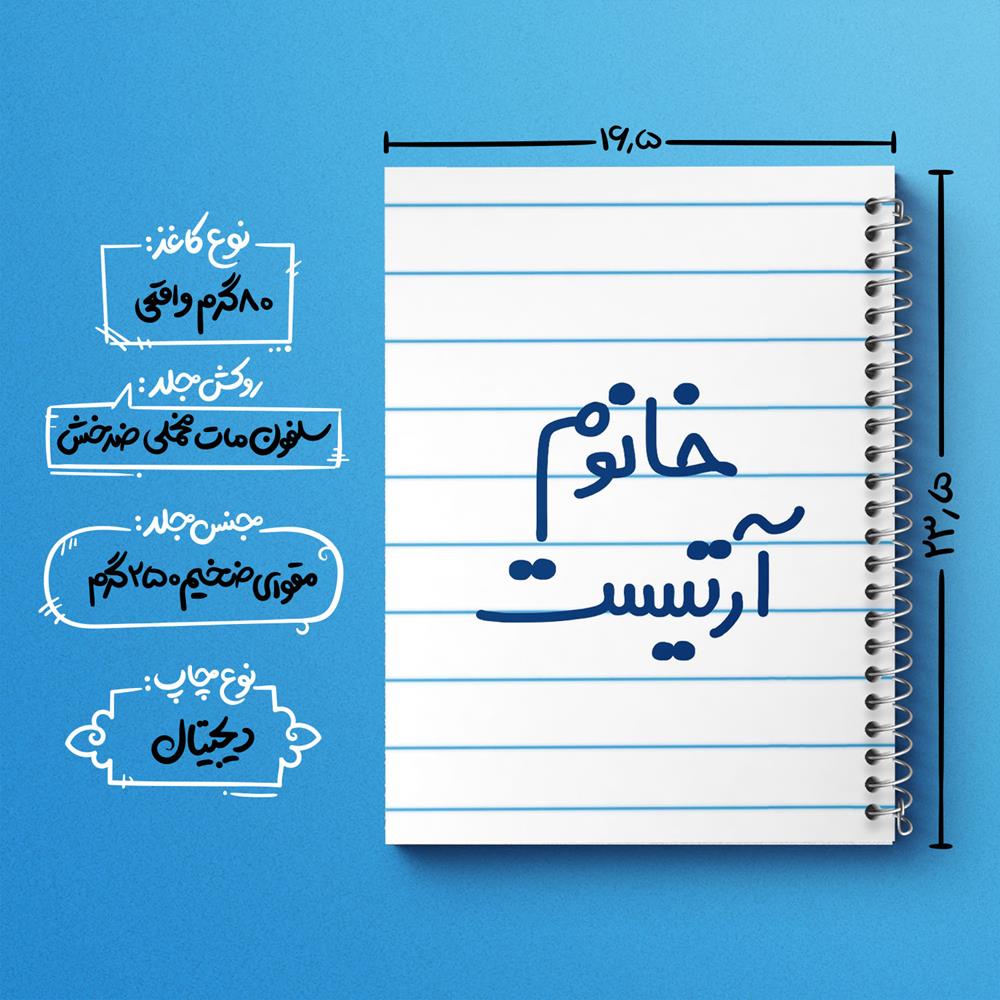 ۱۶,۵
۲۳,۵
خانوم
آرتیست
نوع کاغذ:
۸۰گرم واقعی
روکش جلد:
سلفون مات مخملی ضدخش
جنس جلد:
مقوای ضخیم ۲۵۰گرم
نوع چاپ:
دیجیتال